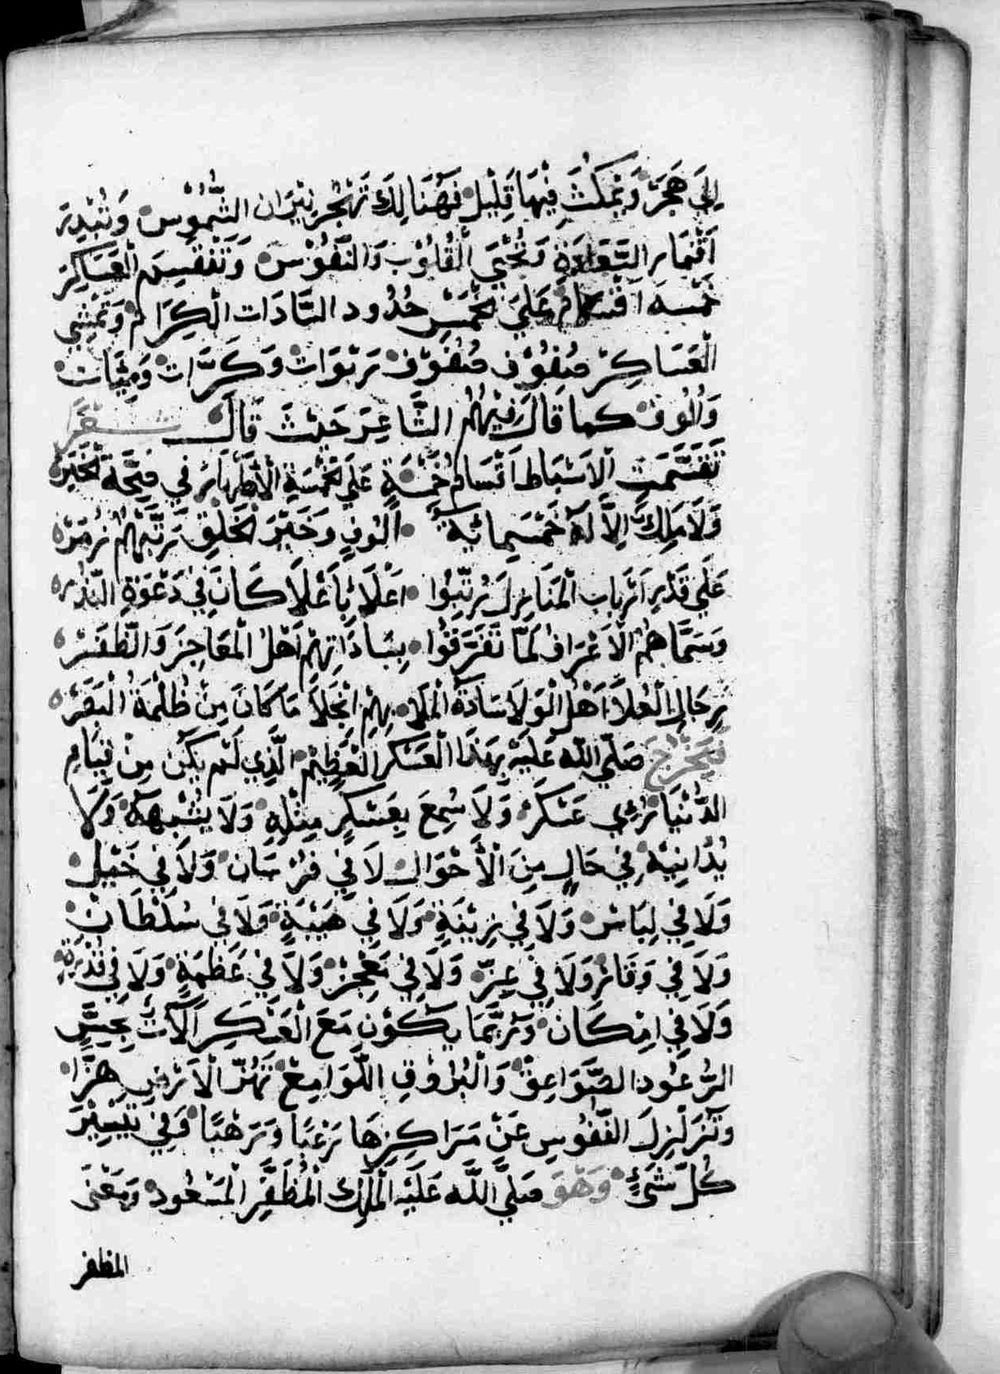 اِلَي هَجَرَ وَيَمكُثَ فِيهَا قَلِيْل فَهُنَالِكَ تَهْجُر نِيْرَان الشُّمُوْس وَتُبْدِيَ
اَقْمَار السَّعَادَةِ وَتُحْيِيَ الْقُلُوْب وَالنُّفُوْس وَتَنْقَسِم الْعَسَاكِرَ
خَمْسَةَ اقْسَامْ عَلَيَ خَمْسِ حُدُود السَّادَات الْكِرَام وَتَمْشِي
الْعَسَاكِرْ صُفُوْف صُفُوْف رَبْوَات وَكَرَّات وَمِئَات
وَالُوف كما قَالَ فِيْهِمْ الشَّاعِرَ حَيْثَ قَالَ شعْرَ
تَقَسَّمَتِ الاَسْبَاط اَقْسَامُ خَمْسَةٍ عَلَي خَمْسَةِ الاَطْهَارِ فِي
وَلَا مَلِكَ اِلاَّ لَهُ خَمْسَمِائَةَ اُلُوْفٍ وَخَيْرَ الْخَلْقِ رَتَّبَهُمْ زُمَرْ
عَلَي قَدْرِ اَرْبَاب الْمَنَازِلَ رُتِّبُوا اَعْلَا بِاَعْلَا كَانَ فِي دَعْوَةِ النُّذُرْ
وَسَمَّاهُمُ الاَعْرَافُ لَمَّا تَفَرَّقُوْا بِسَادَاتِهِمْ اَهْلُ الْمَعَاجِزَ وَالظَّفَرْ
رِجَالِ الْعُلاَ اَهْلَ الْوَلَا سَادَةُ الْمَلَا بِهِمْ انْجَلاَ مَا كَانَ مِنْ ظُلْمَةُ الْبَقَرْ
فَيَخْرُجَ صَلَّي اللّٰه عَلَيْهِ بِهَذَا الْعَسْكَر الْعَظِيْمْ الَّذِي لَمْ يَكُنْ مِنْ قِيَامِ
الدُّنْيَا رُئِي عَسْكَرْ وَلَا سُمِعَ بِعَسْكَرٍ مِثْلِهِ وَلَا يُشْبِهَهُ وَلَا
يُدَانِيْهِ فِي حَالٍ مِنَ الْأَحْوَال لَا فِي فُرْسَان وَلَا فِي خَيْل
وَلَا فِي لِبَاسْ وَلَا فِي زِيْنَةٍ وَلَا فِي هَيْبَةٍ وَلَا فِي سُلْطَان
وَلَا فِي وَقَارْ وَلَا فِي عِزّ وَلَا فِي مَعْجِزْ وَلَا فِي عَظَمَةٍ وَلَا فِي قُدْرَةٍ
وَلَا فِي امْكَان وَرُبَّمَا يَكُوْن مَعَ الْعَسْكَرِ آلَآتٌ بِحِسِّ
الرُّعُود الصَّوَاعِقْ وَالْبُرُوْقِ اللَّوَامِعْ تَهُزُّ الْاَرْضِ هِزَّا
وَتُزَلْزِلَ النُّفُوسِ عَنْ مَرَاكِزِهَا رَغَبًا وَرَهْبًا وَفِي تيسِيْرَ
كُلّ شَيْءٍ وَهْوَ صَلَّيَ اللَّه عَلَيْهِ الْمَلِك الْمُظَفَّرِ الْمَسْعُود وَمَعْنَى
المظفر